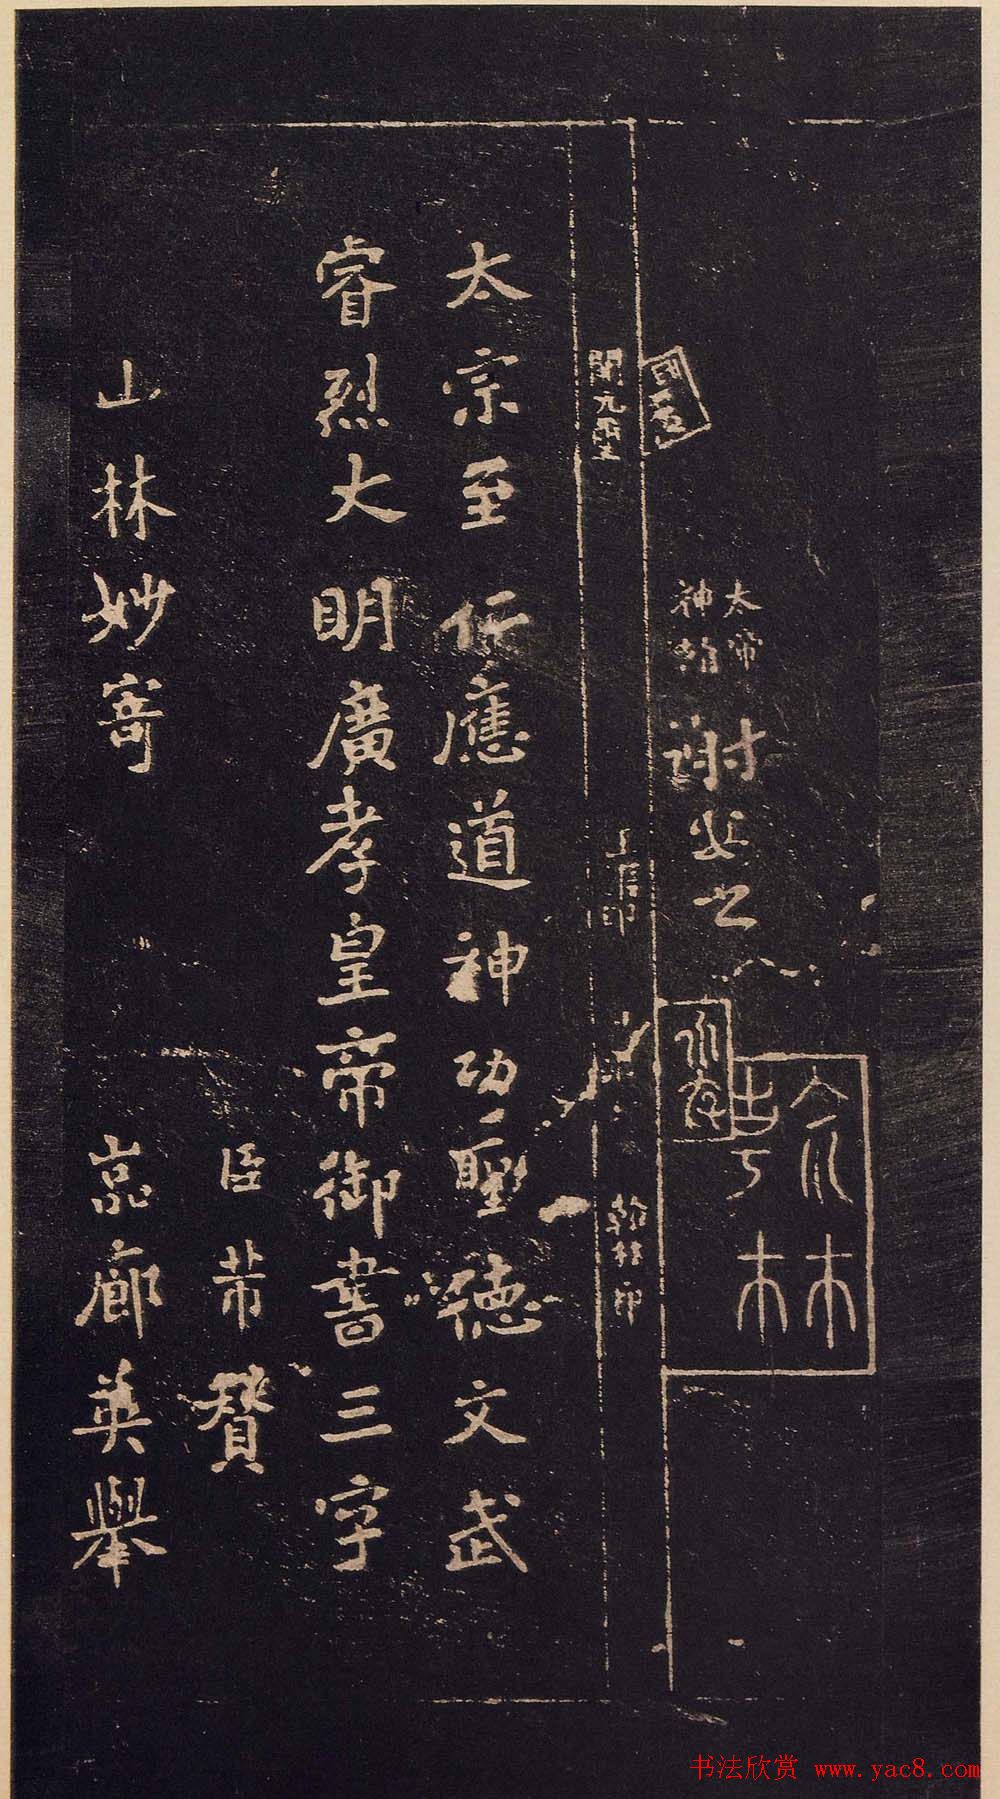 太帝
神翰
謝安書
翰林
開元
翰林印
太宗至仁應道神功聖德文武
睿烈大明廣孝皇帝御書三字
臣芾贊
山林妙寄
巖廊英舉
书法欣赏 www.yac8.com